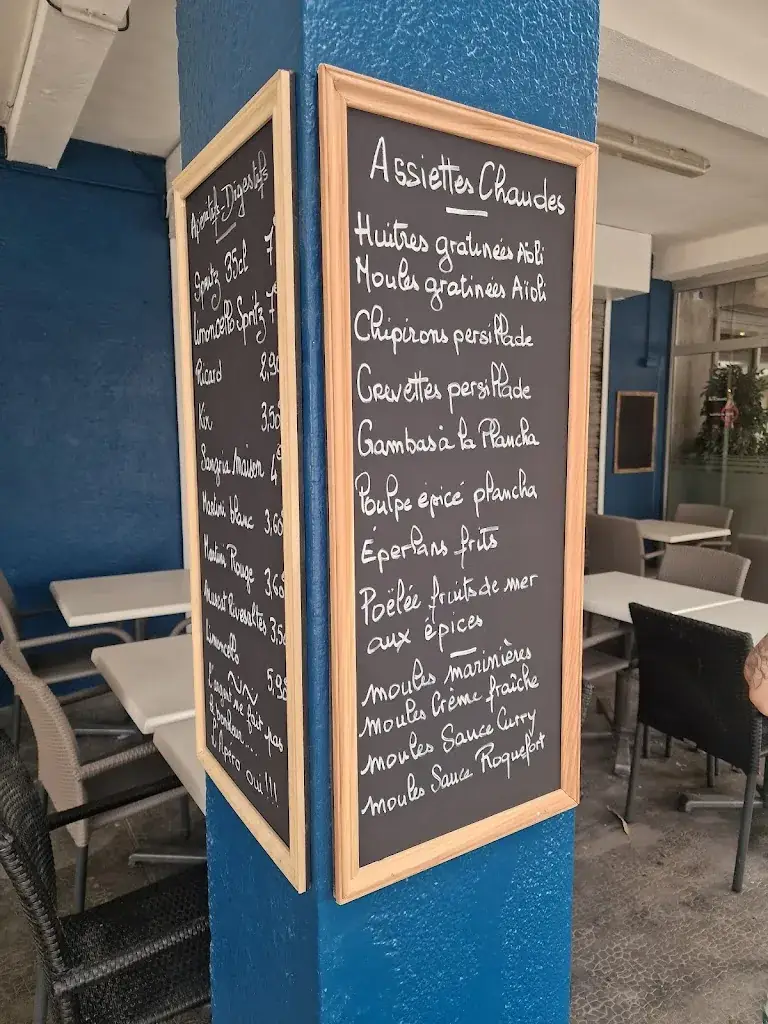 Apéritifs-Digestifs
Spritz 35cl 7€
Limoncello Spritz 7€
Ricard 2,90
Kir 3,50
Sangria Maison 4€
Martini blanc 3,60
Martini Rouge 3,60
Muscat Rivesaltes 3,50
Limoncello 5,90
L'argent ne fait pas
le bonheur....
l'Apéro oui !!!
Assiettes Chaudes
Huitres gratinées Aïoli
Moules gratinées Aïoli
Chipirons persillade
Crevettes persillade
Gambas à la Plancha
Poulpe épicé plancha
Éperlans frits
Poëlée fruits de mer
aux épices
moules marinières
moules Crème fraîche
moules Sauce Curry
moules Sauce Roquefort